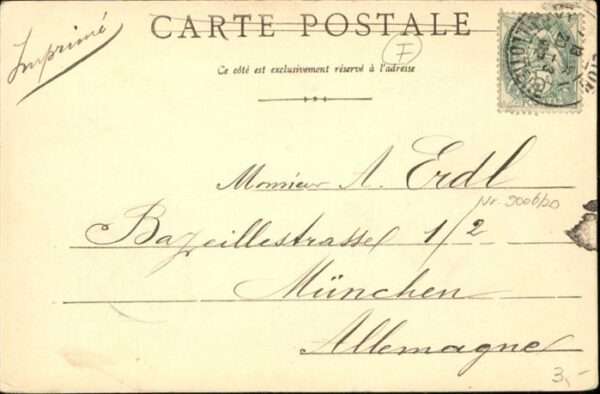 Imprimé
CARTE POSTALE
I
Ce côté est exclusivement réservé à l'adresse
Monsieur A. Erdl
Nr. 5006/20
Bazeillestrasse 1/2
München
Allemagne
3,-